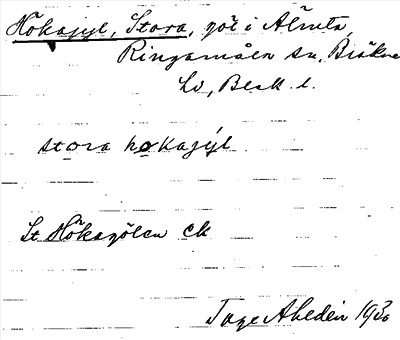 Hökajyl, Stora, göl i Älmta,
Ringamåla sn, Bräkne
hd, Blek. l.
stora hokajýl
St Hökagölen ek
Tage Ahldén 1930